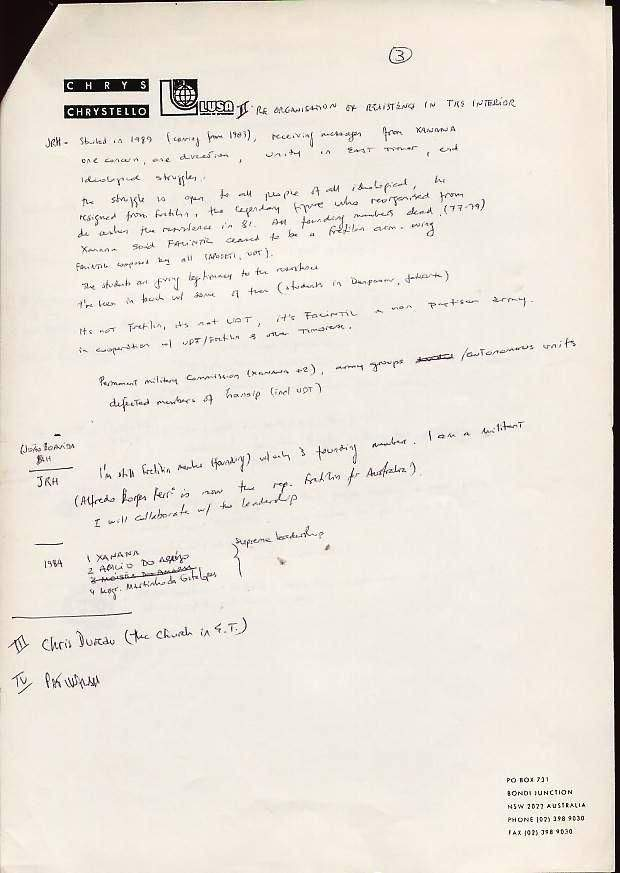 3
CHRYS
CHRYSTELLO
LUSA
II RE ORGANISATION OF RESISTENCE IN THE INTERIOR
JRH - Started in 1989 (coming from 1987), receiving messages from XANANA
one concern, one direction, unity in EAST TIMOR, end
ideological struggles.
The struggle is open to all people of all ideological, he
resigned from Fretilin, the legendary figure who reorganised from
the ashes the resistance in 81. All founding members dead (77-79)
Xanana said FALINTIL ceased to be a Fretilin arm. wing
FALINTIL composed by all (APODETI, UDT).
The students are giving legitimacy to the resistance
I've been in touch w/ some of them (students in Denpasar, Jakarta)
It's not Fretilin, it's not UDT, it's FALINTIL a non partisan army.
in cooperation w/ UDT/Fretilin & other Timorese.
Permanent military Commission (XANANA +2), army groups /autonomous units
defected members of hansip (incl UDT)
JRH
JRH
I'm still Fretilin member (founding) only 3 founding member. I am a militant
(Alfredo Borges Ferr<sup>a</sup> is now the rep. Fretilin for Australia)
I will collaborate w/ the leadership
1984
1 XANANA
2 ABILIO DO ARAÚJO
4 Msgr. Martinho da Costa Lopes
supreme leadership
III Chris Dureau (the church in E.T.)
IV Pat Walsh
PO BOX 731
BONDI JUNCTION
NSW 2022 AUSTRALIA
PHONE (02) 398 9030
FAX (02) 398 9030